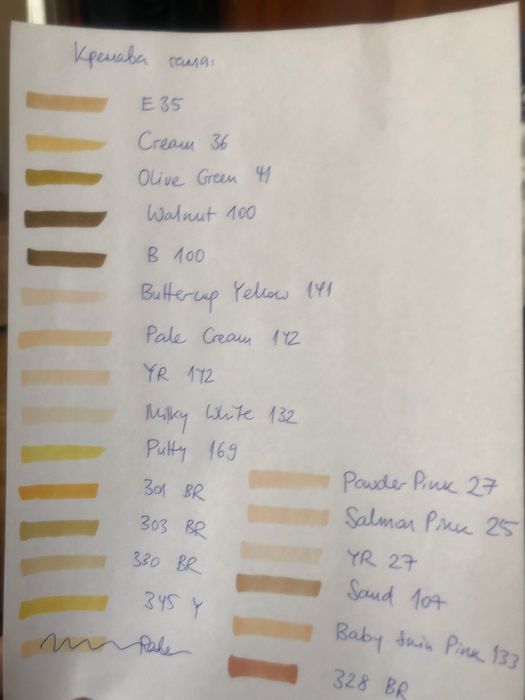 Кремава гама:
E 35
Cream 36
Olive Green 41
Walnut 100
B 100
Buttercup Yellow 141
Pale Cream 142
YR 142
Milky White 132
Putty 169
301 BR
303 BR
330 BR
345 Y
Pale
Powder Pink 27
Salmon Pink 25
YR 27
Sand 107
Baby Skin Pink 133
328 BR